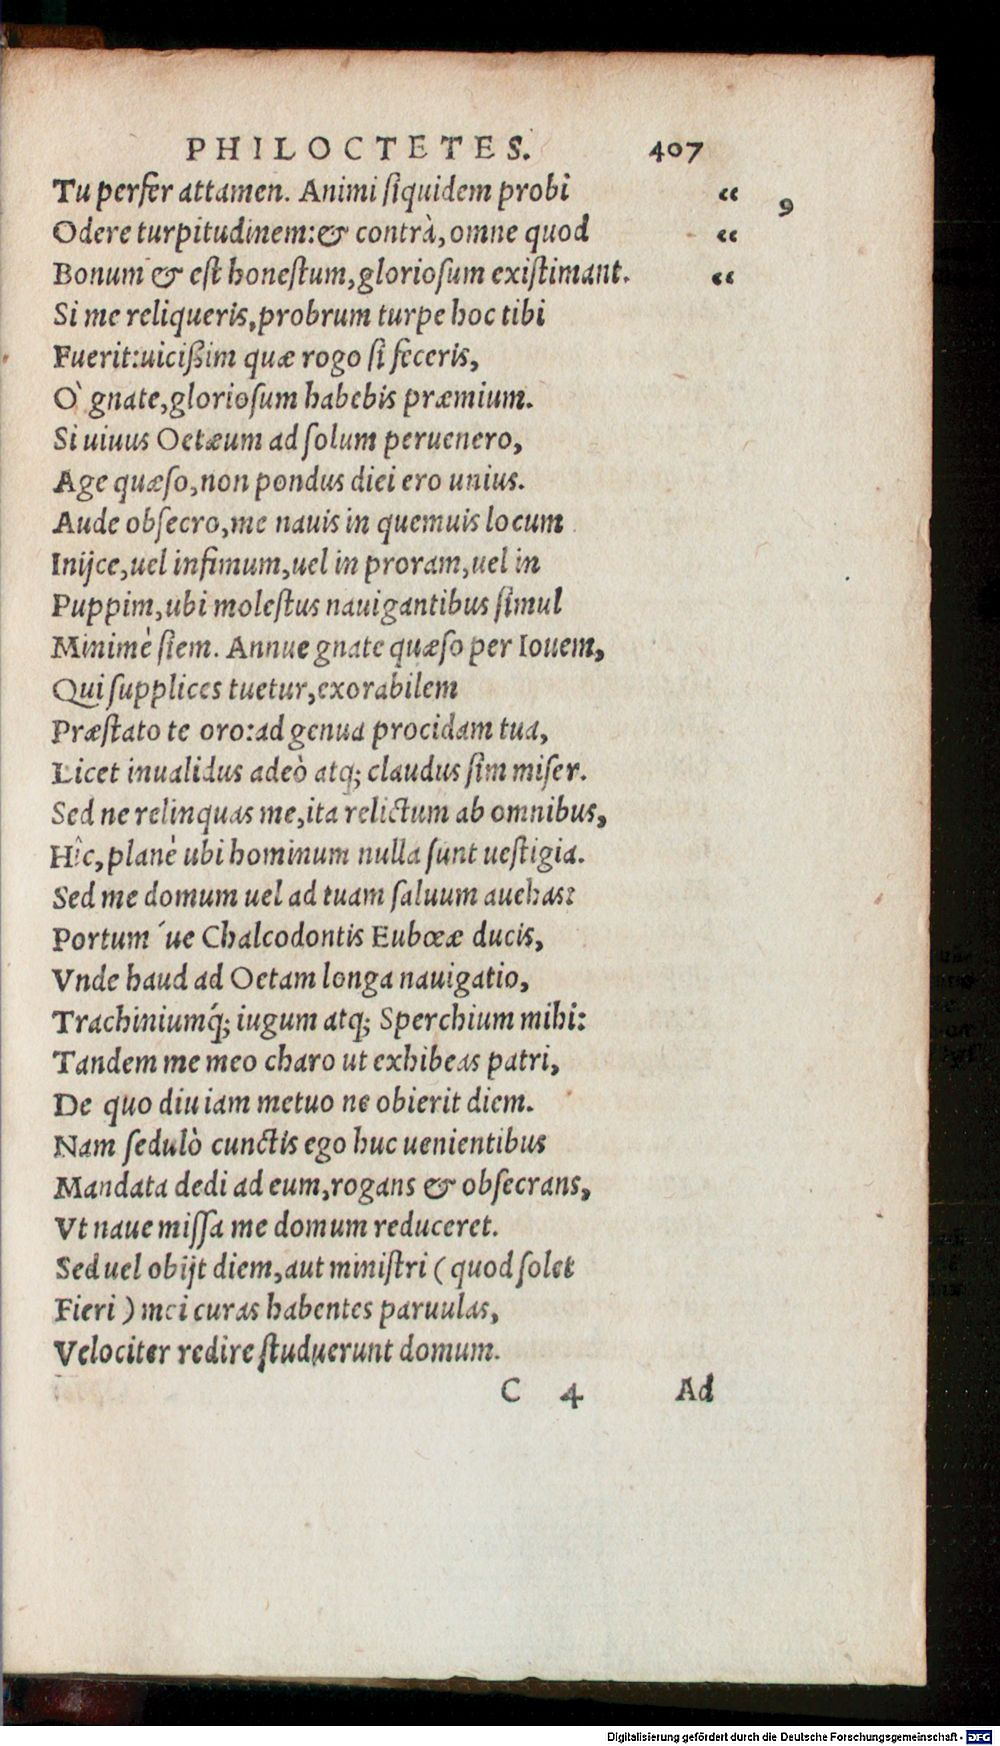 PHILOCTETES. 407
Tu perfer attamen. Animi ſiquidem probi “ 9
Odere turpitudinem:& contrà,omne quod “
Bonum & eſt honeſtum,glorioſum exiſtimant. “
Si me reliqueris,probrum turpe hoc tibi
Fuerit:uicißim quæ rogo ſi feceris,
O` gnate,glorioſum habebis præmium.
Si uiuus Oetæum ad ſolum peruenero,
Age quæſo,non pondus diei ero unius.
Aude obſecro,me nauis in quemuis locum
Inijce,uel infimum,uel in proram,uel in
Puppim,ubi moleſtus nauigantibus ſimul
Minimè ſiem. Annue gnate quæſo per Iouem,
Qui ſupplices tuetur,exorabilem
Præſtato te oro:ad genua procidam tua,
Licet inualidus adeò atq; claudus ſim miſer.
Sed ne relinquas me,ita relictum ab omnibus,
Hîc,planè ubi hominum nulla ſunt ueſtigia.
Sed me domum uel ad tuam ſaluum auehas:
Portum ́ue Chalcodontis Eubœæ ducis,
Vnde haud ad Oetam longa nauigatio,
Trachiniumq́; iugum atq; Sperchium mihi:
Tandem me meo charo ut exhibeas patri,
De quo diu iam metuo ne obierit diem.
Nam ſedulò cunctis ego huc uenientibus
Mandata dedi ad eum,rogans & obſecrans,
Vt naue miſſa me domum reduceret.
Sed uel obijt diem,aut miniſtri ( quod ſolet
Fieri ) mei curas habentes paruulas,
Velociter redire ſtuduerunt domum.
C 4 Ad
Digitalisierung gefördert durch die Deutsche Forschungsgemeinschaft - DFG